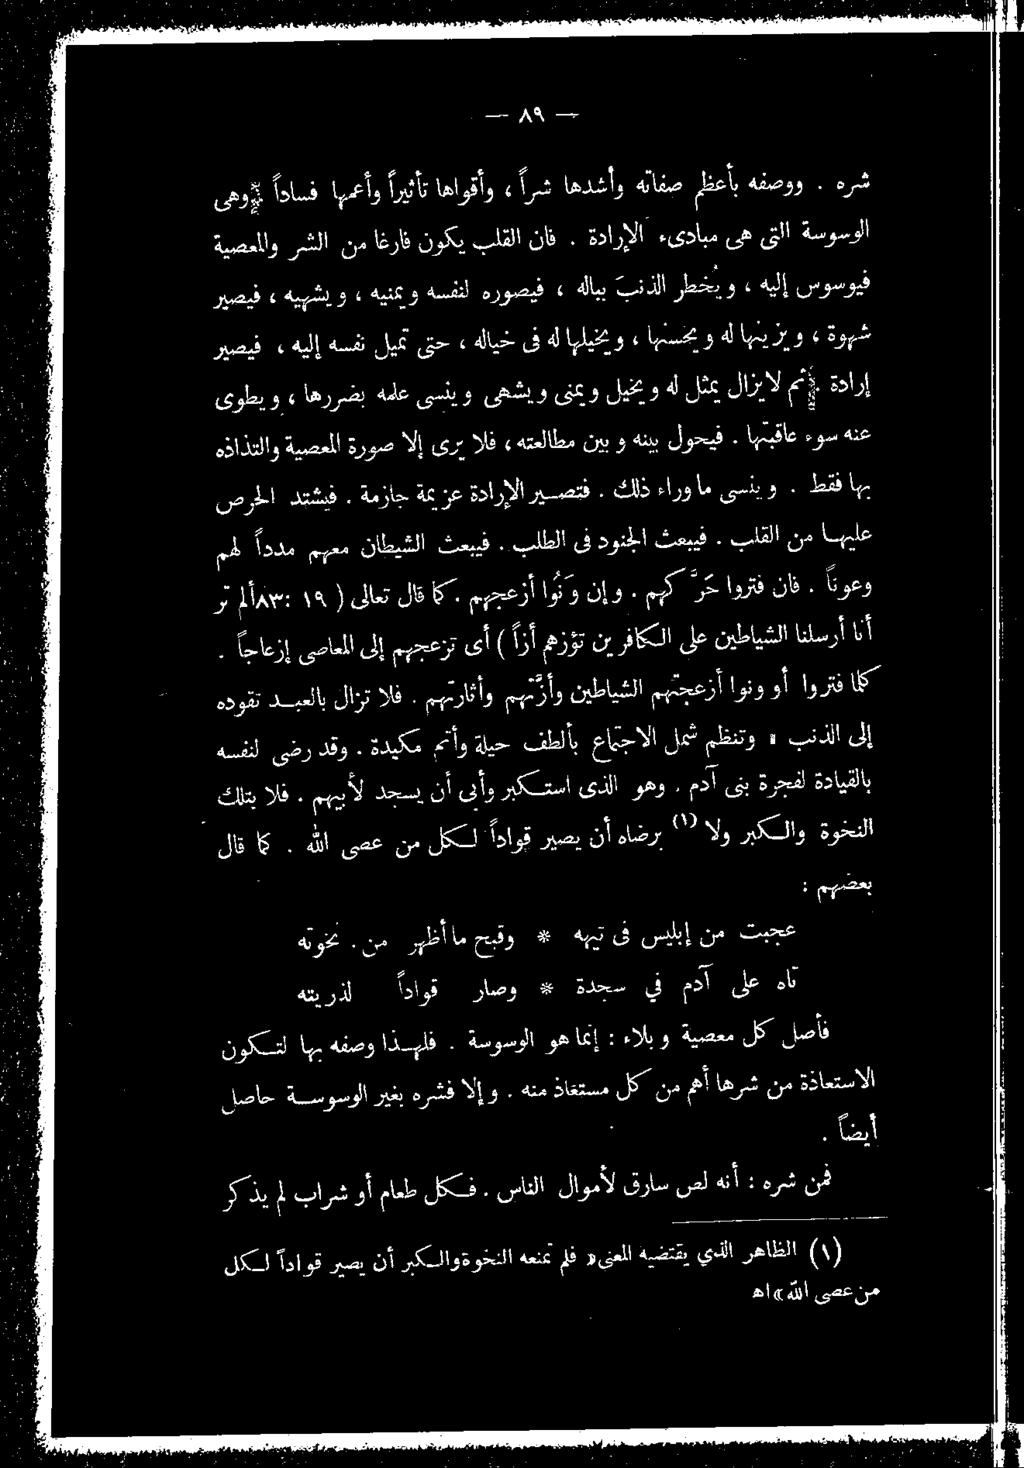 — ٨٩ —
شره . ووصفه بأعظم صفاته وأشدها شراً ، وأقواها تأثيراً وأعمها فساداً وهى
الوسوسة التى هى مبادىء الإرادة . فان القلب يكون فارغا من الشر والمعصية
فيوسوس إليه ، ويُخطر الذنبَ بباله ، فيصوره لنفسه ويمنيه ، ويشهيه ، فيصير
شهوة ، ويزينها له ويحسنها ، ويخيلها له فى خياله ، حتى تميل نفسه إليه ، فيصير
إرادة . ثم لايزال يمثل له ويخيل ويمنى ويشهى وينسى علمه بضررها ، ويطوى
عنه سوء عاقبتها . فيحول بينه وبين مطالعته ، فلا يرى إلا صورة المعصية والتذاذه
بها فقط . وينسى ما وراء ذلك . فتصير الإرادة عزيمة جازمة . فيشتد الحرص
عليها من القلب . فيبعث الجنود فى الطلب . فيبعث الشيطان معهم مدداً لهم
وعوناً . فان فتروا حَرَّكهم . وإن وَنُوا أزعجهم . كما قال تعالى ( ١٩ :٨٣ ألم تر
أنا أرسلنا الشياطين على الكافرين تؤزهم أزاً ) أى تزعجهم إلى المعاصى إزعاجاً .
كلما فتروا أو ونوا أزعجتهم الشياطين وأزَّتهم وأثارتهم . فلا تزال بالعبد تقوده
إلى الذنب ، وتنظم شمل الاجتماع بألطف حيلة وأتم مكيدة . وقد رضى لنفسه
بالقيادة لفجرة بنى آدم . وهو الذى استكبر وأبى أن يسجد لأبيهم . فلا بتلك
النخوة والكبر ولا (١) برضاه أن يصير قواداً لكل من عصى الله . كما قال
بعضهم :
عجبت من إبليس فى تيهه * وقبح ما أظهر من . نخوته
تاه على آدم في سجدة * وصار قواداً لذريته
فأصل كل معصية وبلاء : إنما هو الوسوسة . فلهذا وصفه بها لتكون
الاستعاذة من شرها أهم من كل مستعاذ منه . وإلا فشره بغير الوسوسة حاصل
أيضاً .
فمن شره : أنه لص سارق لأموال الناس . فكل طعام أو شراب لم يذكر
(١) الظاهر الذي يقتضيه المعنى « فلم تمنعه النخوة والكبر أن يصير قواداً لكل
من عصى الله » اه